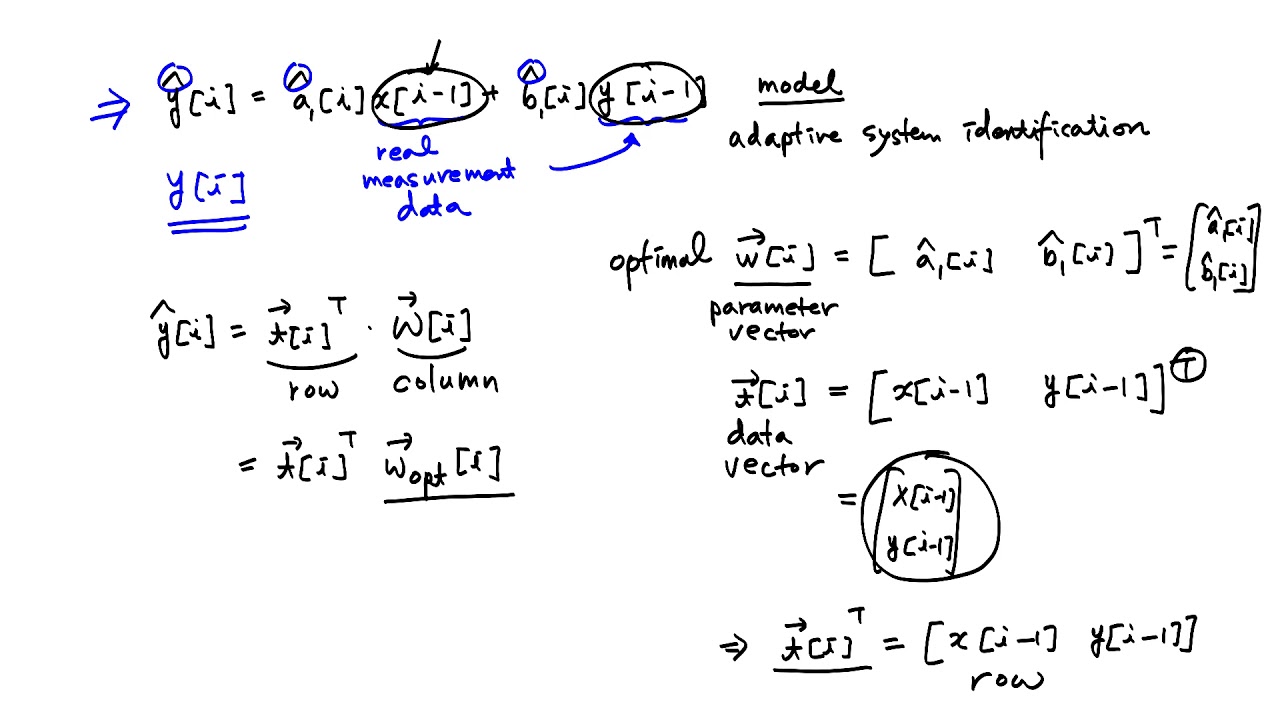 ⇒ ŷ[i] = â₁[i] x[i-1] + b̂₁[i] y[i-1] model
adaptive system identification
real
measurement
data
y[i]
optimal w⃗[i] = [ â₁[i] b̂₁[i] ]ᵀ = [ â₁[i]
b̂₁[i] ]
parameter
vector
ŷ[i] = t⃗[i]ᵀ · w⃗[i]
row column
= t⃗[i]ᵀ w⃗opt[i]
t⃗[i] = [ x[i-1] y[i-1] ]ᵀ
data
vector
= [ x[i-1]
y[i-1] ]
⇒ t⃗[i]ᵀ = [ x[i-1] y[i-1] ]
row